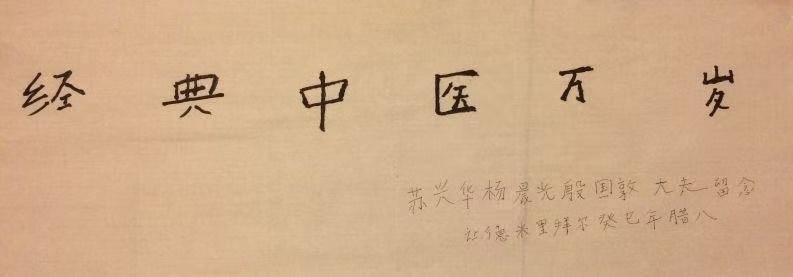 经典中医万岁
苏兴华杨晨光殷国敦大夫留念
让德米里拜尔癸巳年腊八